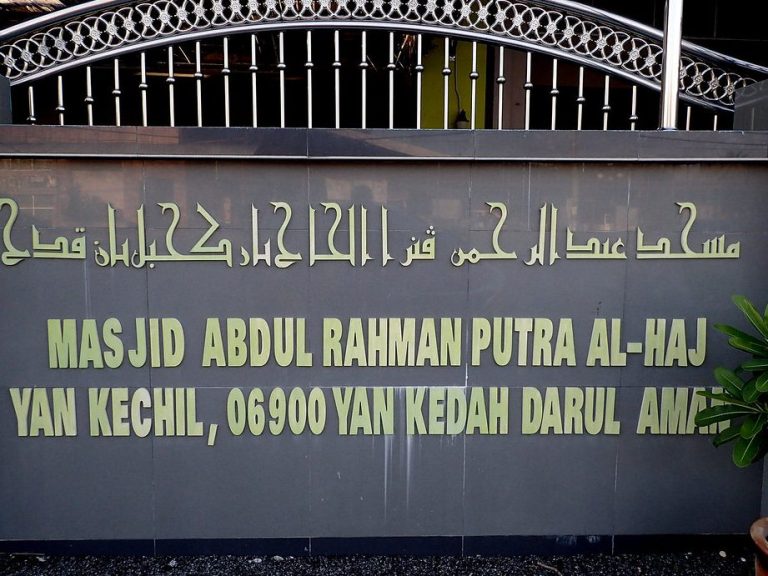 مسجد عبد الرحمن ڤترا الحاج يان كچيل يان قدح
MASJID ABDUL RAHMAN PUTRA AL-HAJ
YAN KECHIL, 06900 YAN KEDAH DARUL AMAN